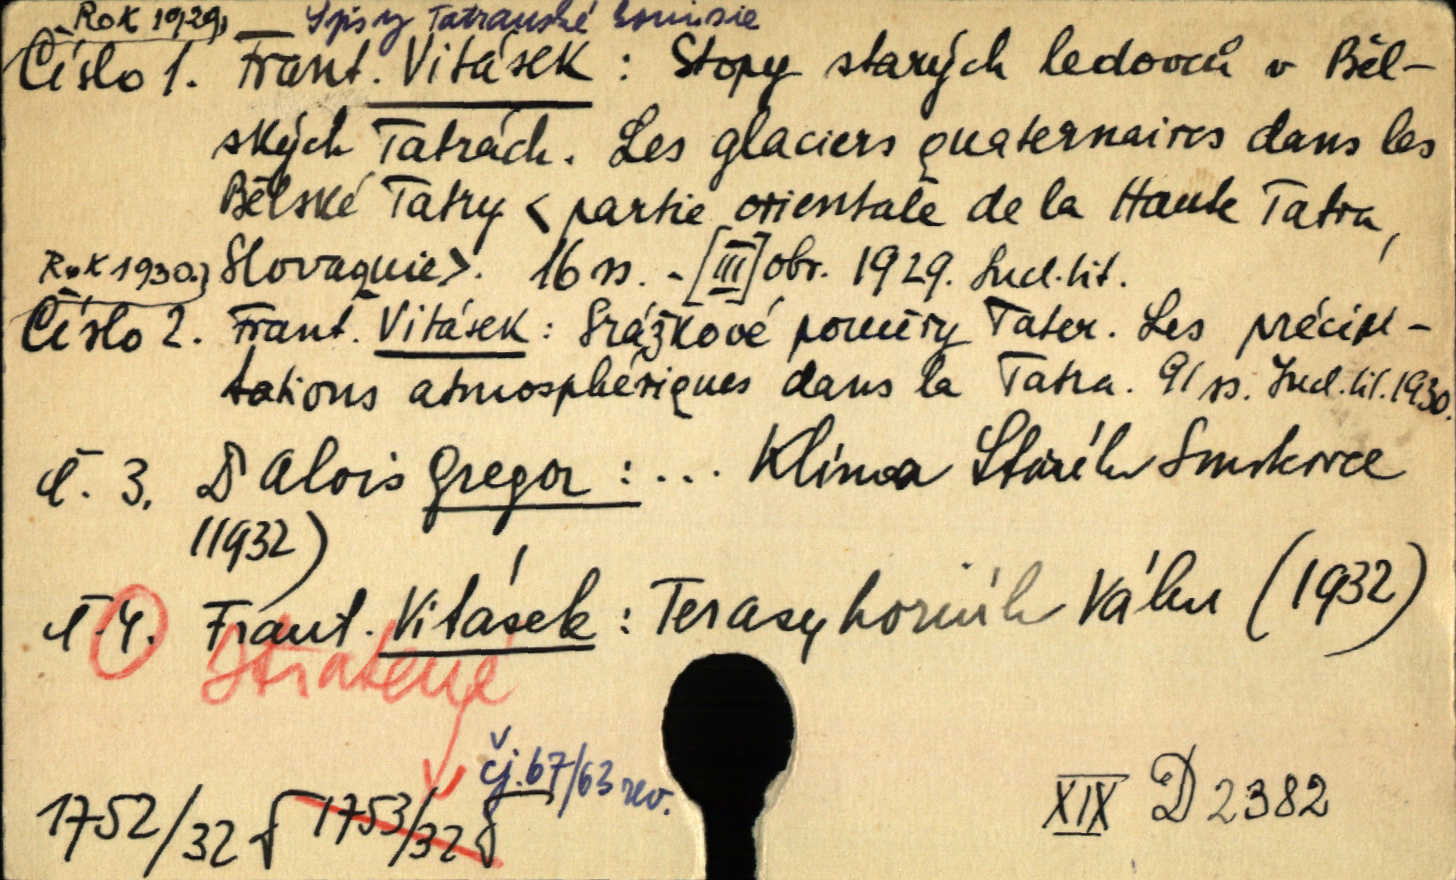 Rok 1929, Spisy Tatranské komisie
Číslo 1. Frant. Vitásek : Stopy starých ledovců v Běl-
ských Tatrách. Les glaciers quaternaires dans les
Bělské Tatry < partie orientale de la Haute Tatra,
Rok 1930. Slovaquie>. 16 ss. - [III] obr. 1929. Ind. lit.
Číslo 2. Frant. Vitásek : Srážkové poměry Tater. Les précipi-
tations atmosphériques dans la Tatra. 91 ss. Ind. lit. 1930.
č. 3. D Alois Gregor : ... Klima Starého Smokovce
(1932)
č. 4. Frant. Vitásek : Terasy horního Váhu (1932)
Stratené
čj. 67/63 rev.
1752/32 1753/32
XIX D 2382